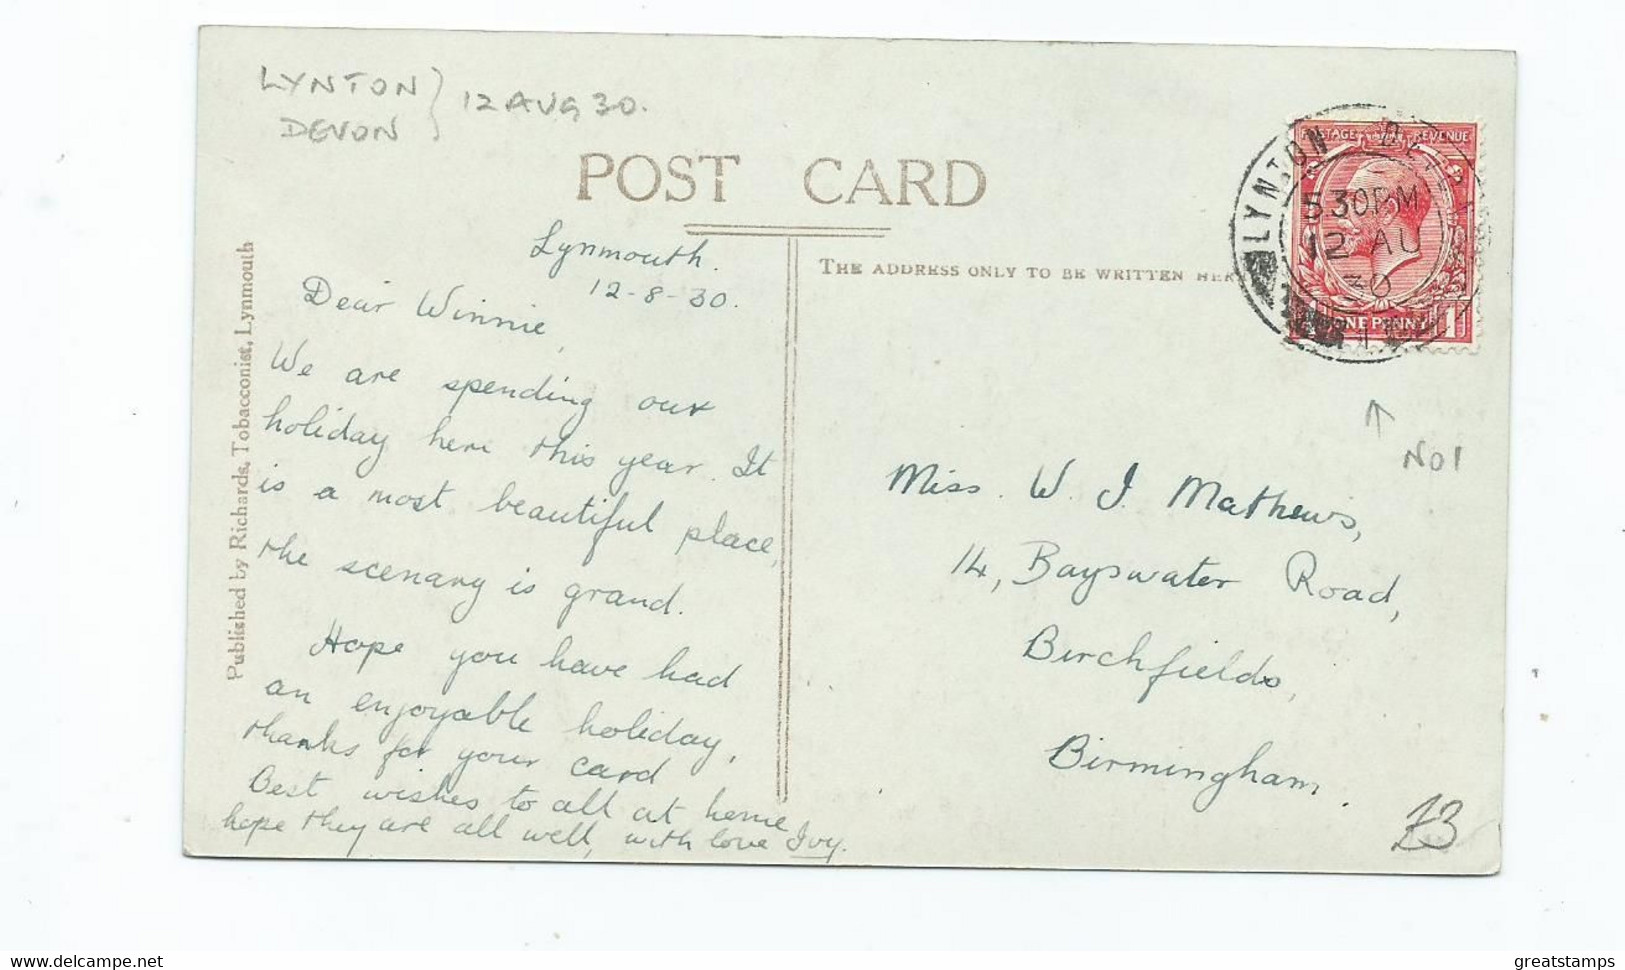 LYNTON } 12 AUG 30.
DEVON
POST CARD
THE ADDRESS ONLY TO BE WRITTEN HER
Published by Richards, Tobacconist, Lynmouth
Lynmouth.
12-8-30.
Dear Winnie,
We are spending our
holiday here this year. It
is a most beautiful place,
the scenary is grand.
Hope you have had
an enjoyable holiday,
thanks for your card
Best wishes to all at home
hope they are all well, with love Ivy.
LYNTON DEV
5 30PM
12 AU
30
POSTAGE REVENUE
ONE PENNY 1
↑
NO1
Miss. W. J. Mathews,
14, Bayswater Road,
Birchfields,
Birmingham.
£3
www.delcampe.net
greatstamps